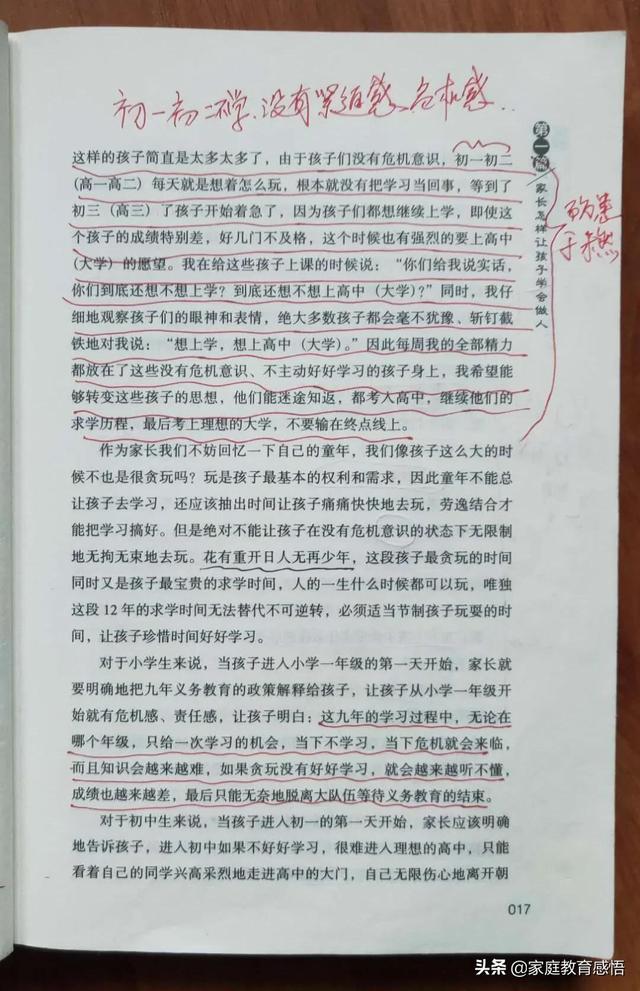 初一初二不学、没有紧迫感、危机感..
这样的孩子简直是太多太多了，由于孩子们没有危机意识，初一初二
（高一高二）每天就是想着怎么玩，根本就没有把学习当回事，等到了
初三（高三）了孩子开始着急了，因为孩子们都想继续上学，即使这
个孩子的成绩特别差，好几门不及格，这个时候也有强烈的要上高中
（大学）的愿望。我在给这些孩子上课的时候说：“你们给我说实话，
你们到底还想不想上学？到底还想不想上高中（大学）？”同时，我仔
细地观察孩子们的眼神和表情，绝大多数孩子都会毫不犹豫、斩钉截
铁地对我说：“想上学，想上高中（大学）。”因此每周我的全部精力
都放在了这些没有危机意识、不主动好好学习的孩子身上，我希望能
够转变这些孩子的思想，他们能迷途知返，都考入高中，继续他们的
求学历程，最后考上理想的大学，不要输在终点线上。
作为家长我们不妨回忆一下自己的童年，我们像孩子这么大的时
候不也是很贪玩吗？玩是孩子最基本的权利和需求，因此童年不能总
让孩子去学习，还应该抽出时间让孩子痛痛快快地去玩，劳逸结合才
能把学习搞好。但是绝对不能让孩子在没有危机意识的状态下无限制
地无拘无束地去玩。花有重开日人无再少年，这段孩子最贪玩的时间
同时又是孩子最宝贵的求学时间，人的一生什么时候都可以玩，唯独
这段 12 年的求学时间无法替代不可逆转，必须适当节制孩子玩耍的时
间，让孩子珍惜时间好好学习。
对于小学生来说，当孩子进入小学一年级的第一天开始，家长就
要明确地把九年义务教育的政策解释给孩子，让孩子从小学一年级开
始就有危机感、责任感，让孩子明白：这九年的学习过程中，无论在
哪个年级，只给一次学习的机会，当下不学习，当下危机就会来临，
而且知识会越来越难，如果贪玩没有好好学习，就会越来越听不懂，
成绩也越来越差，最后只能无奈地脱离大队伍等待义务教育的结束。
对于初中生来说，当孩子进入初一的第一天开始，家长应该明确
地告诉孩子，进入初中如果不好好学习，很难进入理想的高中，只能
看着自己的同学兴高采烈地走进高中的大门，自己无限伤心地离开朝
第一篇
家长怎样让孩子学会做人
于未燃
017
头条 @家庭教育感悟